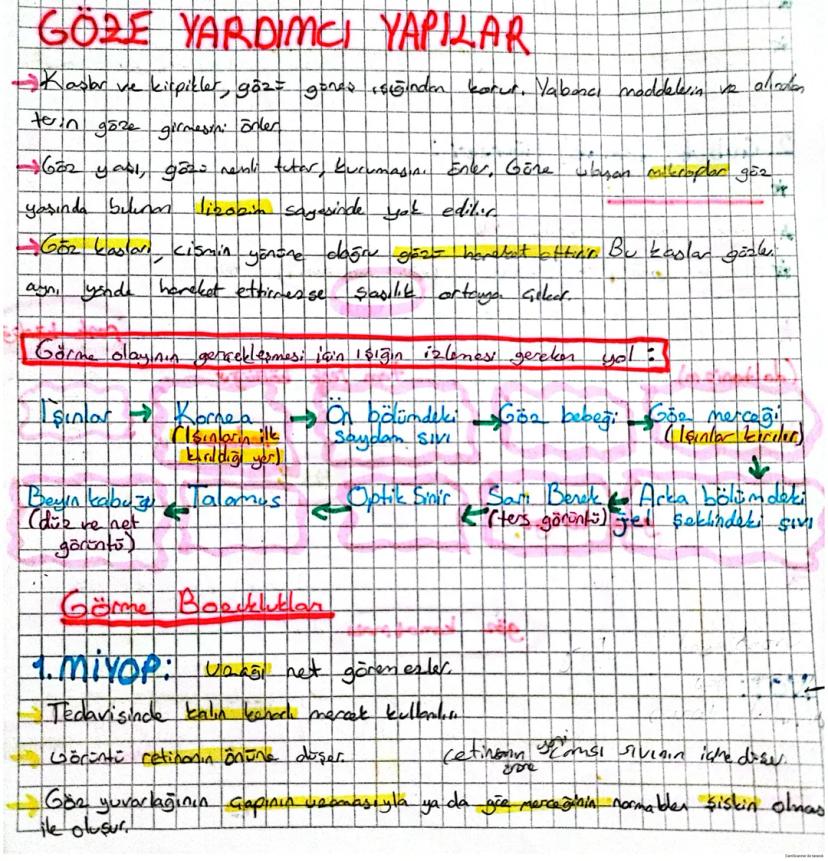 GÖZE YARDIMCI YAPILAR
→ Kaşlar ve kirpikler, gözü güneş ışığından korur. Yabancı maddelerin ve alından
terin göze girmesini önler.
→ Göz yaşı, gözü nemli tutar, kurumasını önler. Göze ulaşan mikroplar göz
yaşında bulunan lizozim sayesinde yok edilir.
→ Göz kasları, cismin yönüne doğru gözü hareket ettirir. Bu kaslar gözleri
aynı yönde hareket ettirmezse şaşılık ortaya çıkar.
Görme olayının gerçekleşmesi için ışığın izlemesi gereken yol :
Işınlar → Kornea (Işınların ilk kırıldığı yer) → Ön bölümdeki saydam sıvı → Göz bebeği → Göz merceği (Işınlar kırılır)
↓
Beyin kabuğu (düz ve net görüntü) ← Talamus ← Optik Sinir ← Sarı Benek (ters görüntü) ← Arka bölümdeki jel şeklindeki sıvı
Görme Bozuklukları
1. MİYOP: Uzağı net göremezler.
→ Tedavisinde kalın kenarlı mercek kullanılır.
→ Görüntü retinanın önüne düşer. retinanın sıvının içine düşer.
→ Göz yuvarlağının çapının uzamasıyla ya da göz merceğinin normalden şişkin olması
ile oluşur.